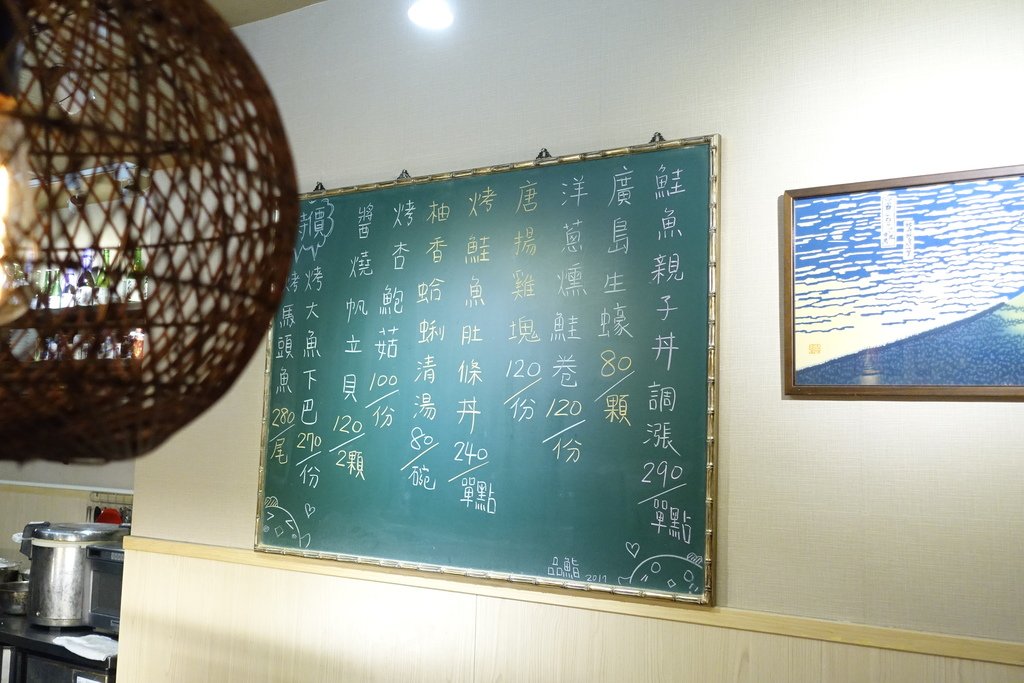 鮭魚親子丼調漲290/單點
廣島生蠔80/顆
洋蔥燻鮭卷120/份
唐揚雞塊120/份
烤鮭魚肚條丼240/單點
柚香蛤蜊清湯80/碗
烤杏鮑菇100/份
醬燒帆立貝120/2顆
時價
烤大魚下巴270/份
烤馬頭魚280/尾
品鮨 2017